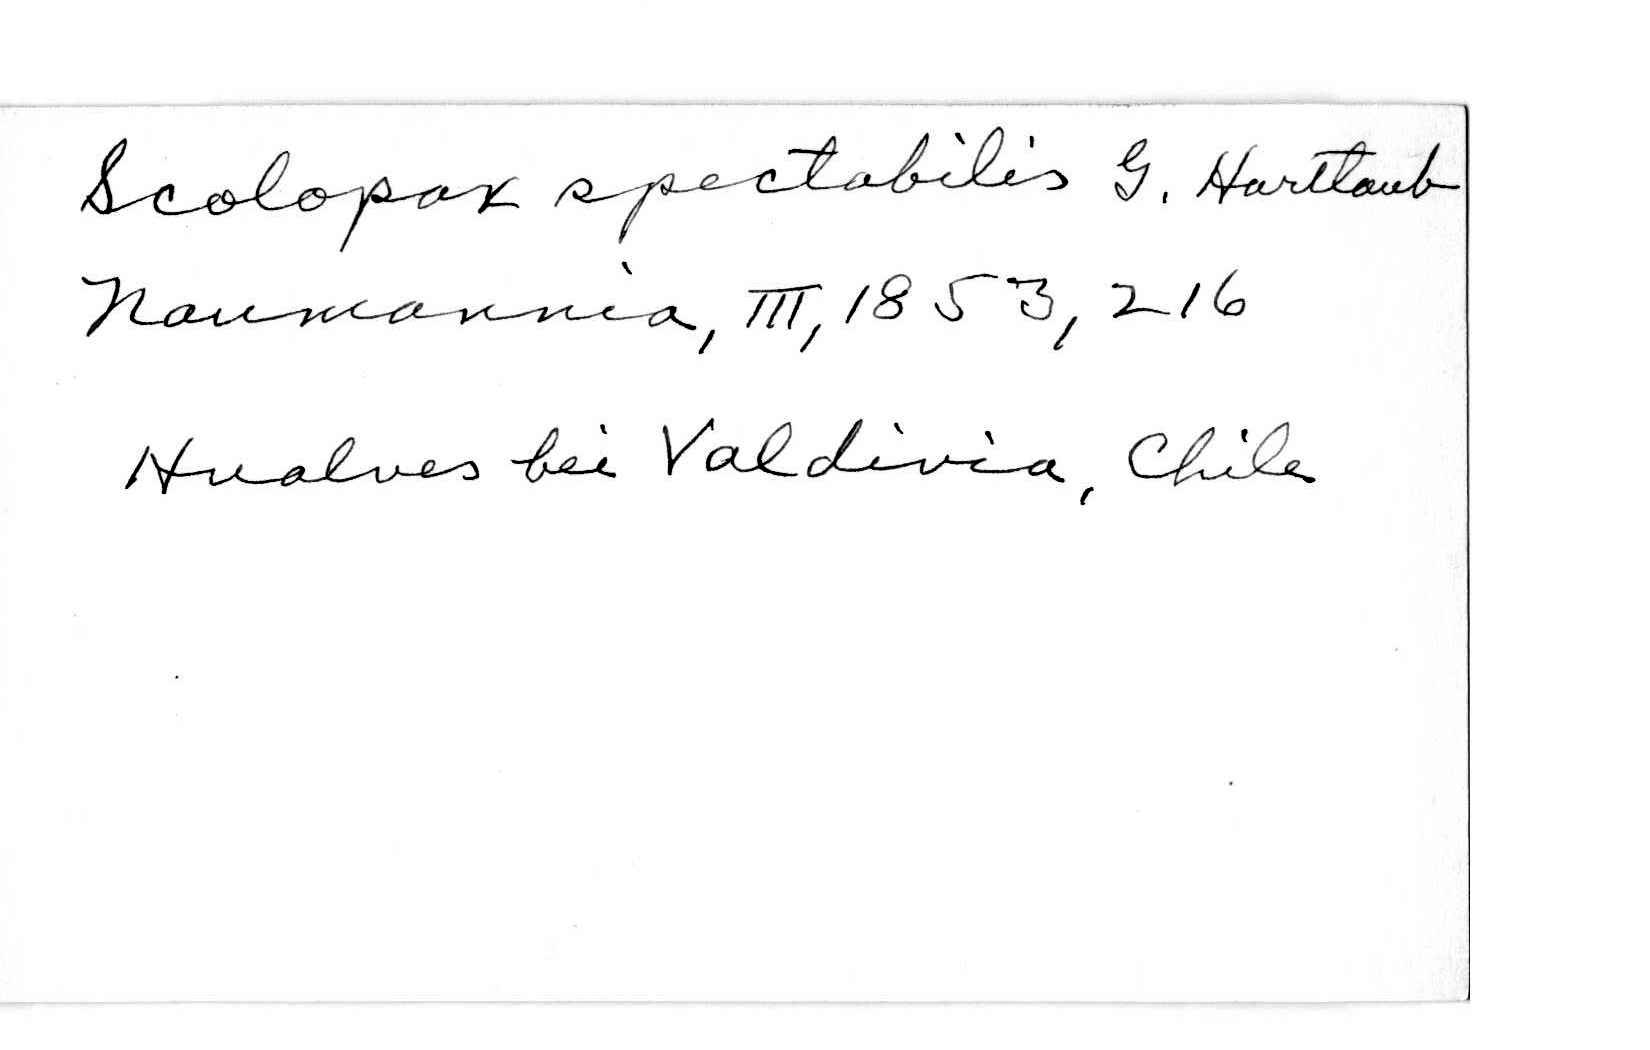 Scolopax spectabilis G. Hartlaub
Naumannia, III, 1853, 216
Hualves bei Valdivia, Chile